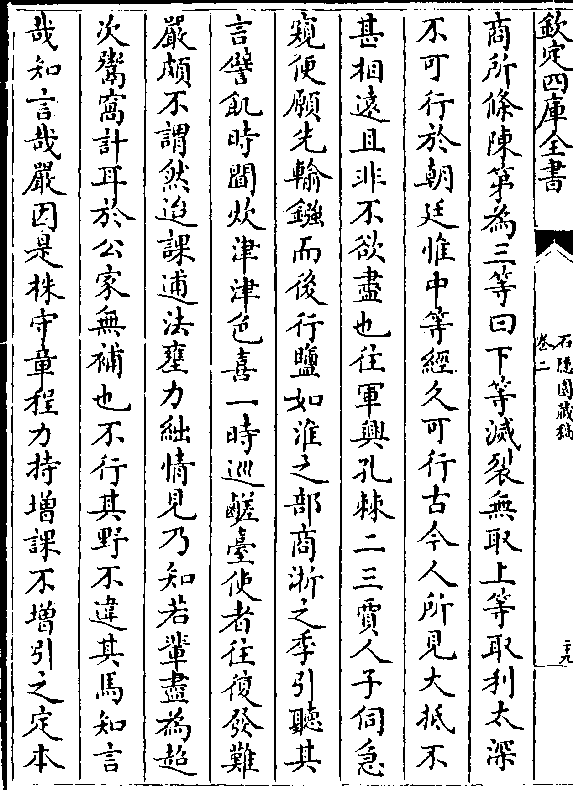 欽定四庫全書
石隱園藏稿
卷二
二十九
商所條陳第為三等曰下等滅裂無取上等取利太深
不可行於朝廷惟中等經久可行古今人所見大抵不
甚相遠且非不欲盡也往軍興孔棘二三賈人子伺急
窺便願先輸鏹而後行鹽如淮之部商浙之季引聽其
言譬飢時聞炊津津色喜一時巡鹺臺使者往復發難
嚴頗不謂然迨課逋法壅力絀情見乃知若輩盡為超
次鬻窩計耳於公家無補也不行其野不違其馬知言
哉知言哉嚴因是株守章程力持增課不增引之定本